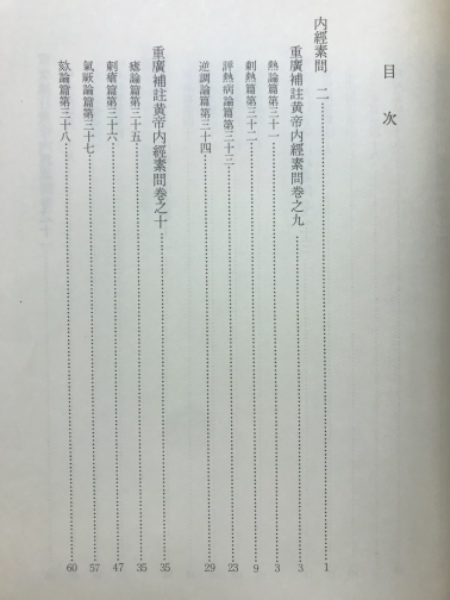 目次
内經素問 二……1
重廣補註黄帝内經素問巻之九……3
熱論篇第三十一……3
刺熱篇第三十二……9
評熱病論篇第三十三……23
逆調論篇第三十四……29
重廣補註黄帝内經素問巻之十……35
瘧論篇第三十五……35
刺瘧篇第三十六……47
氣厥論篇第三十七……57
欬論篇第三十八……60